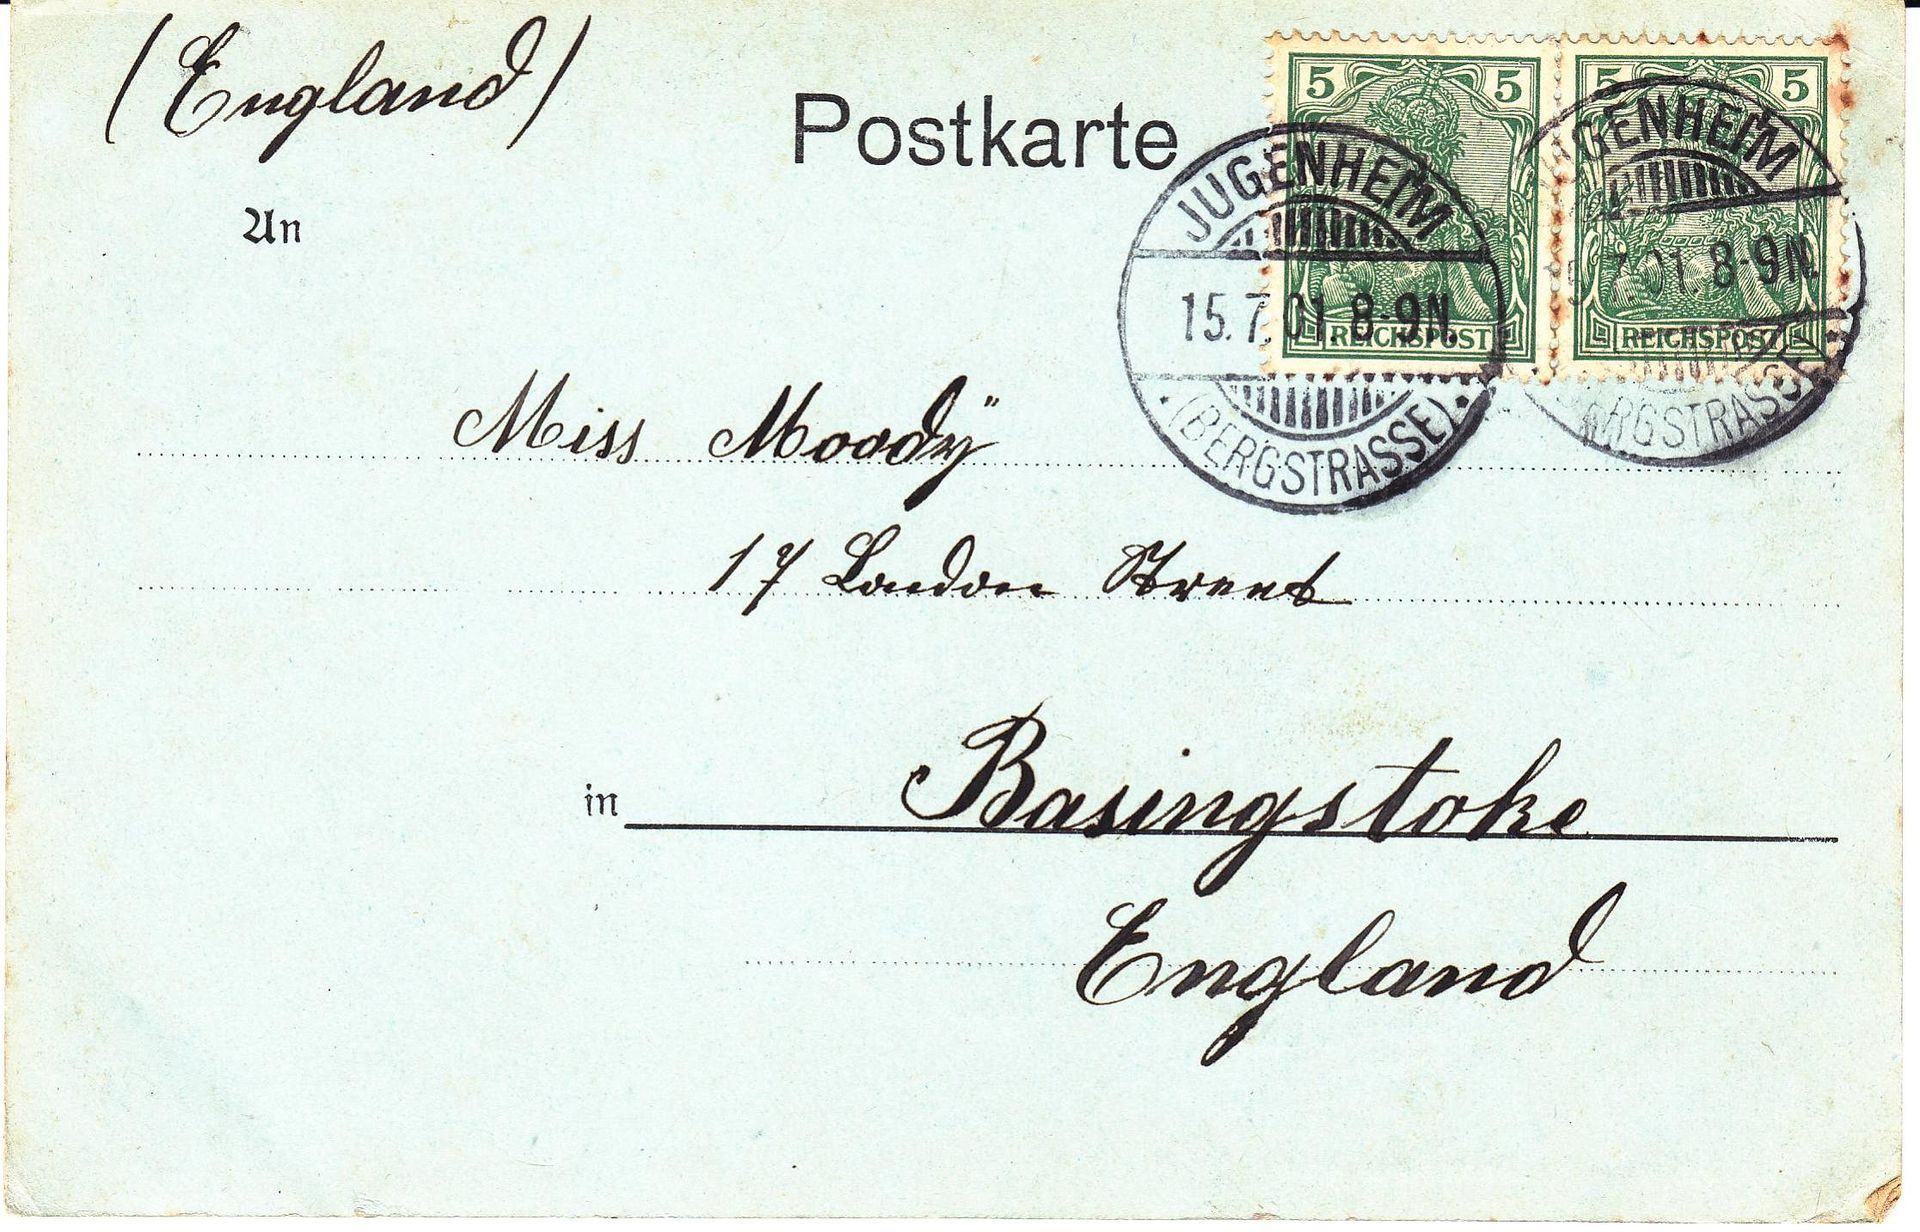 (England)
Postkarte
5 5
5 5
REICHSPOST
REICHSPOST
JUGENHEIM
15.7.01.8-9N.
(BERGSTRASSE)
GENHEIM
7.01.8-9N.
RGSTRASSE
An
Miss Moody
17 London Street
in Basingstoke
England